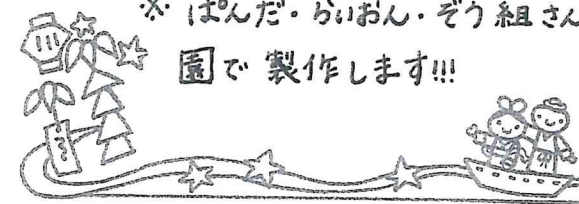 ※ ぱんだ・らいおん・ぞう組さん
園で製作します!!!